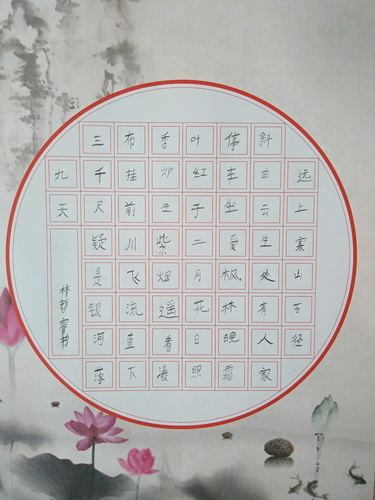 远上寒山石径
斜白云生处有人家
停车坐爱枫林晚霜
叶红于二月花日照
香炉生紫烟遥看瀑
布挂前川飞流直下
三千尺疑是银河落
九天
林哲 书